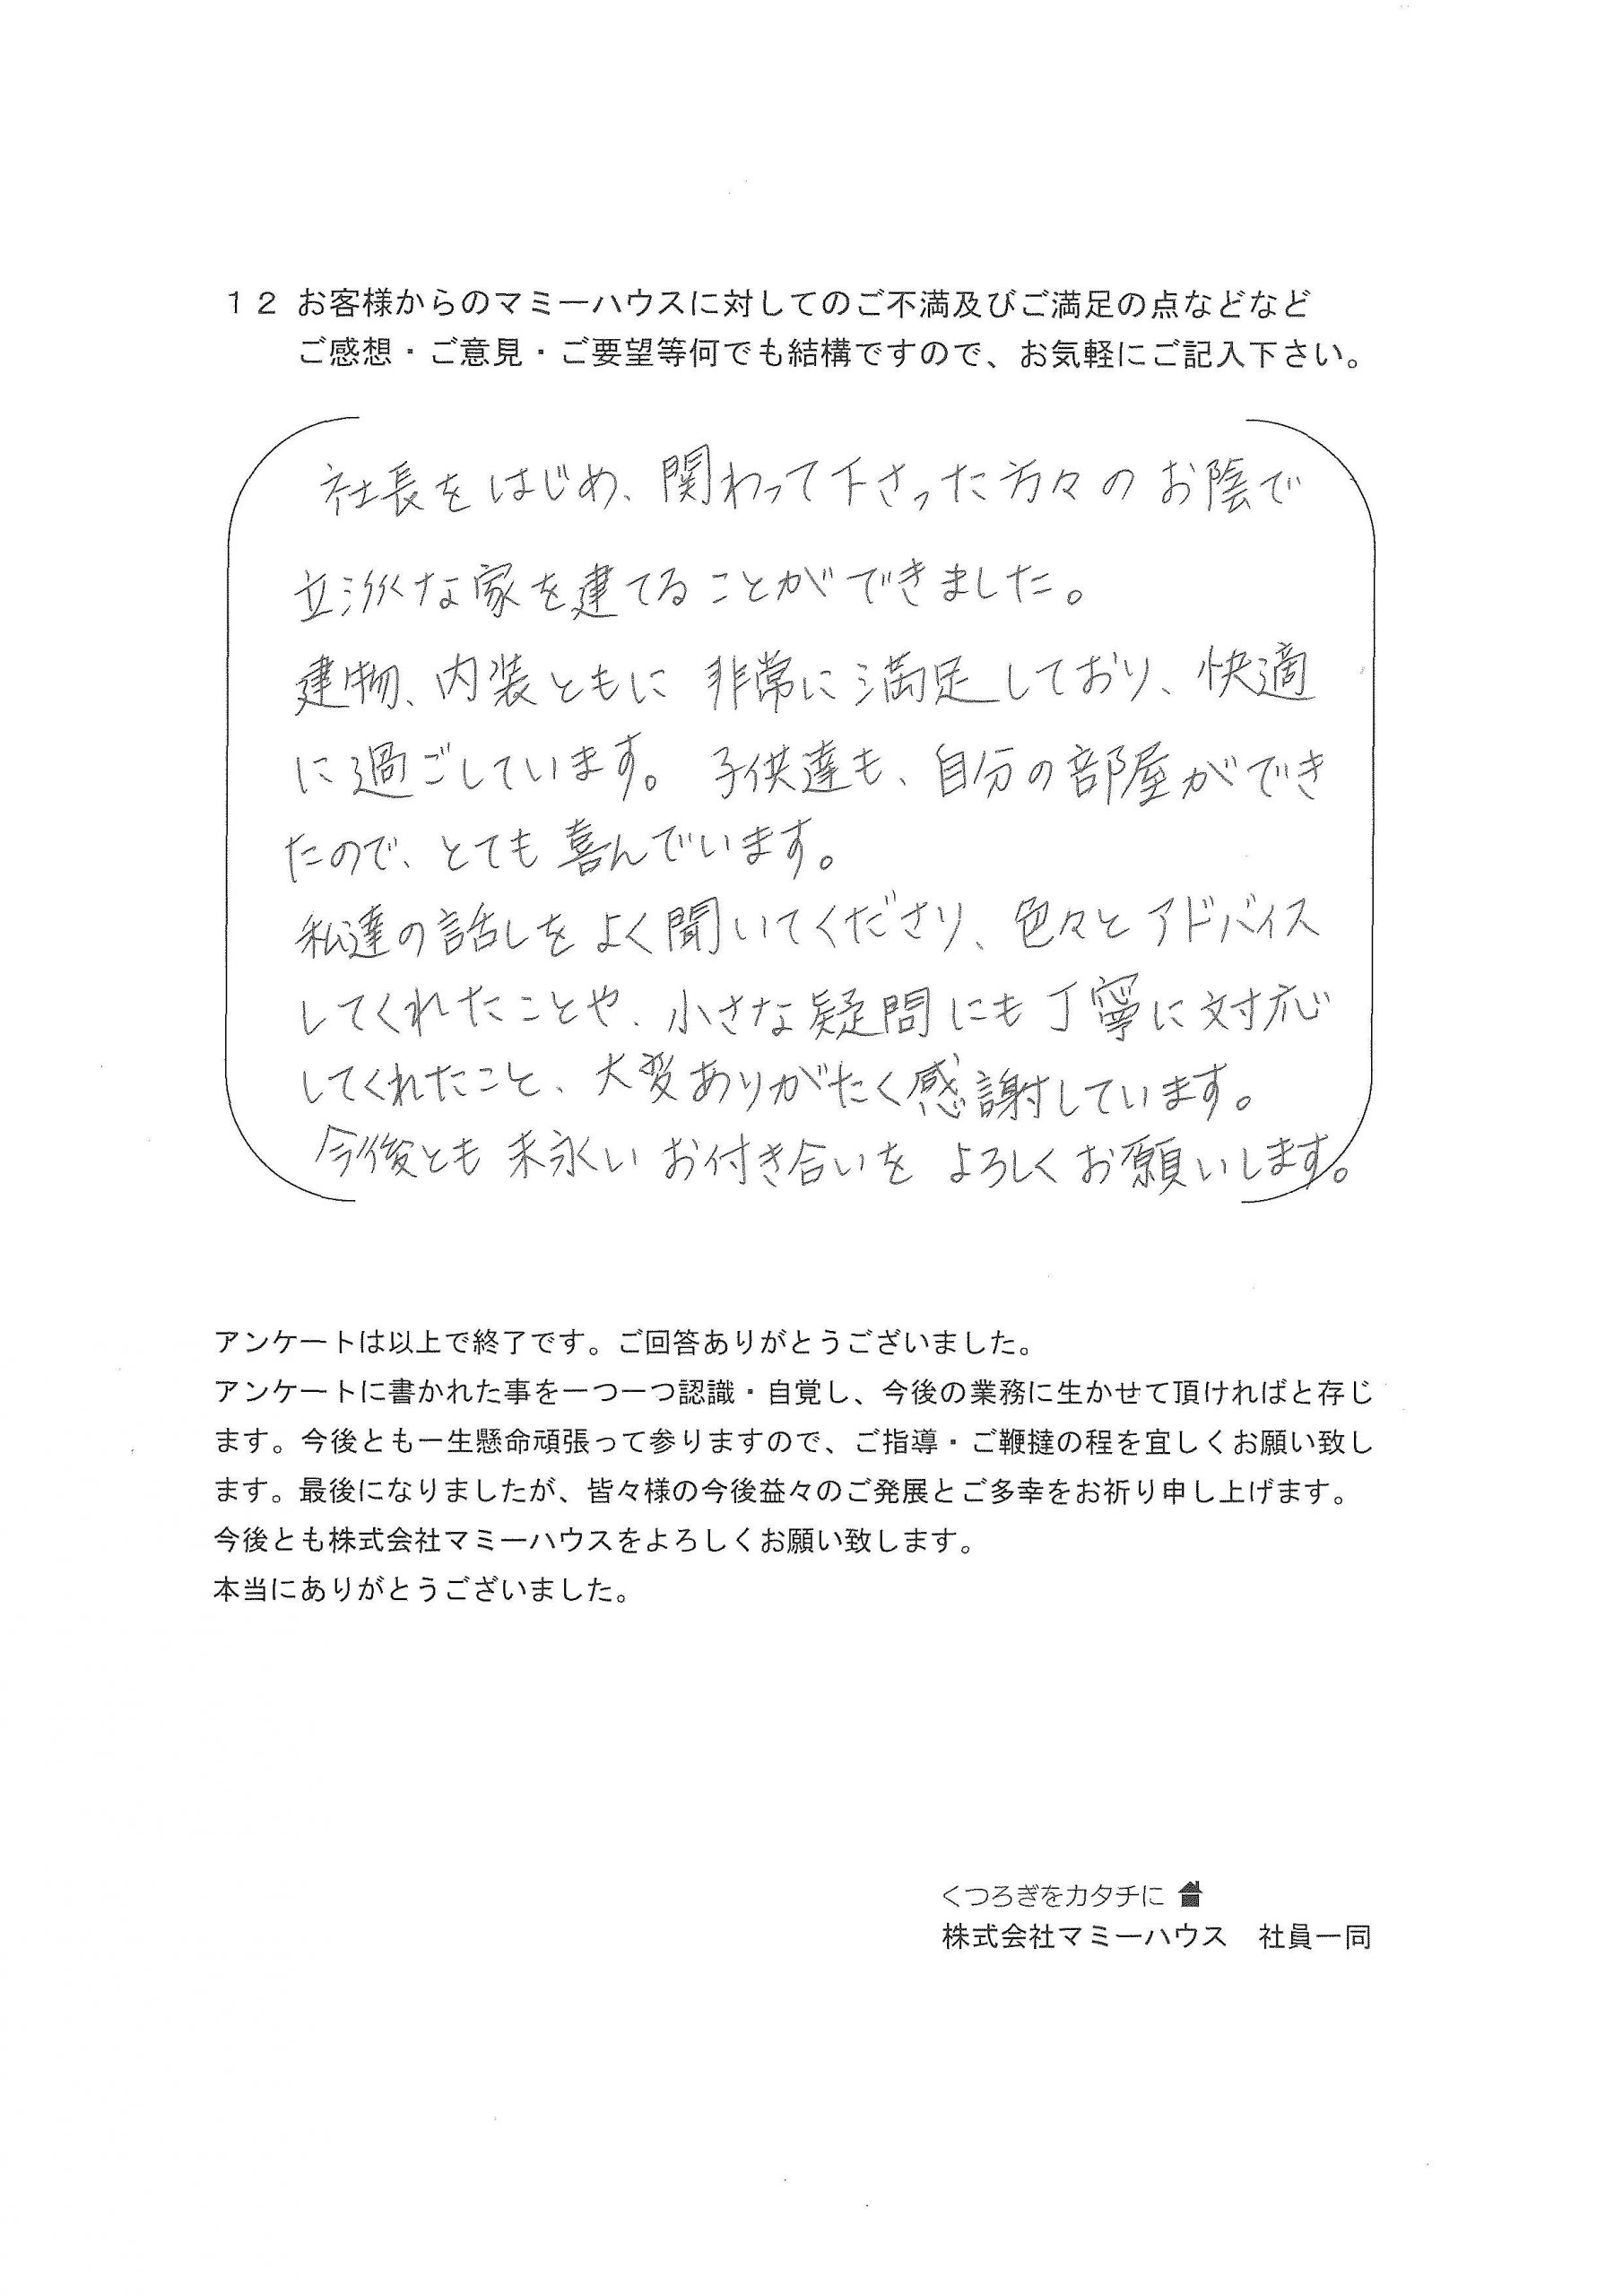 12 お客様からのマミーハウスに対してのご不満及びご満足の点などなど
ご感想・ご意見・ご要望等何でも結構ですので、お気軽にご記入下さい。
社長をはじめ、関わって下さった方々のお陰で
立派な家を建てることができました。
建物、内装ともに非常に満足しており、快適
に過ごしています。子供達も、自分の部屋ができ
たので、とても喜んでいます。
私達の話しをよく聞いてくださり、色々とアドバイス
してくれたことや、小さな疑問にも丁寧に対応
してくれたこと、大変ありがたく感謝しています。
今後とも末永いお付き合いをよろしくお願いします。
アンケートは以上で終了です。ご回答ありがとうございました。
アンケートに書かれた事を一つ一つ認識・自覚し、今後の業務に生かせて頂ければと存じ
ます。今後とも一生懸命頑張って参りますので、ご指導・ご鞭撻の程を宜しくお願い致し
ます。最後になりましたが、皆々様の今後益々のご発展とご多幸をお祈り申し上げます。
今後とも株式会社マミーハウスをよろしくお願い致します。
本当にありがとうございました。
くつろぎをカタチに
株式会社マミーハウス　社員一同